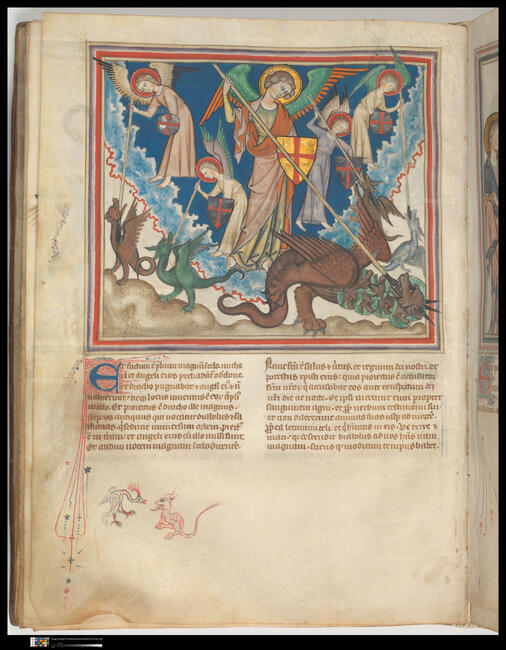 Et factum e plium magnum i celo. micha
el et angeli eius preliabantur cum dracone
et draco pugnabat et angeli ei et n
ualuerunt neqz locus inuentus e eor ampl
in celo. Et proiectus e draco ille magnus
serpens antiquus qui uocatur diabolus et sa
thanas. qui seducit uniuersum orbem. piect
e in terram et angeli eius cu illo missi sunt
Et audiui uocem magnam i celo dicente.
Nunc facta e salus et uirtus. et regnum dei nostri. et
potestas xpisti eius. quia proiectus e accusator
frm nror qui accusabat eos ante conspectum dei
nri die ac nocte. Et ipsi uicerunt eum propter
sanguinem agni. et pp uerbum testimonii sui
et non dilexerunt animas suas usqz ad morte
Pp ea letamini celi. et q habitatis in eis. Ve terre et
mari. qa descendit diabolus ad uos hns iram
magnam. sciens qd modicum tempus habet.